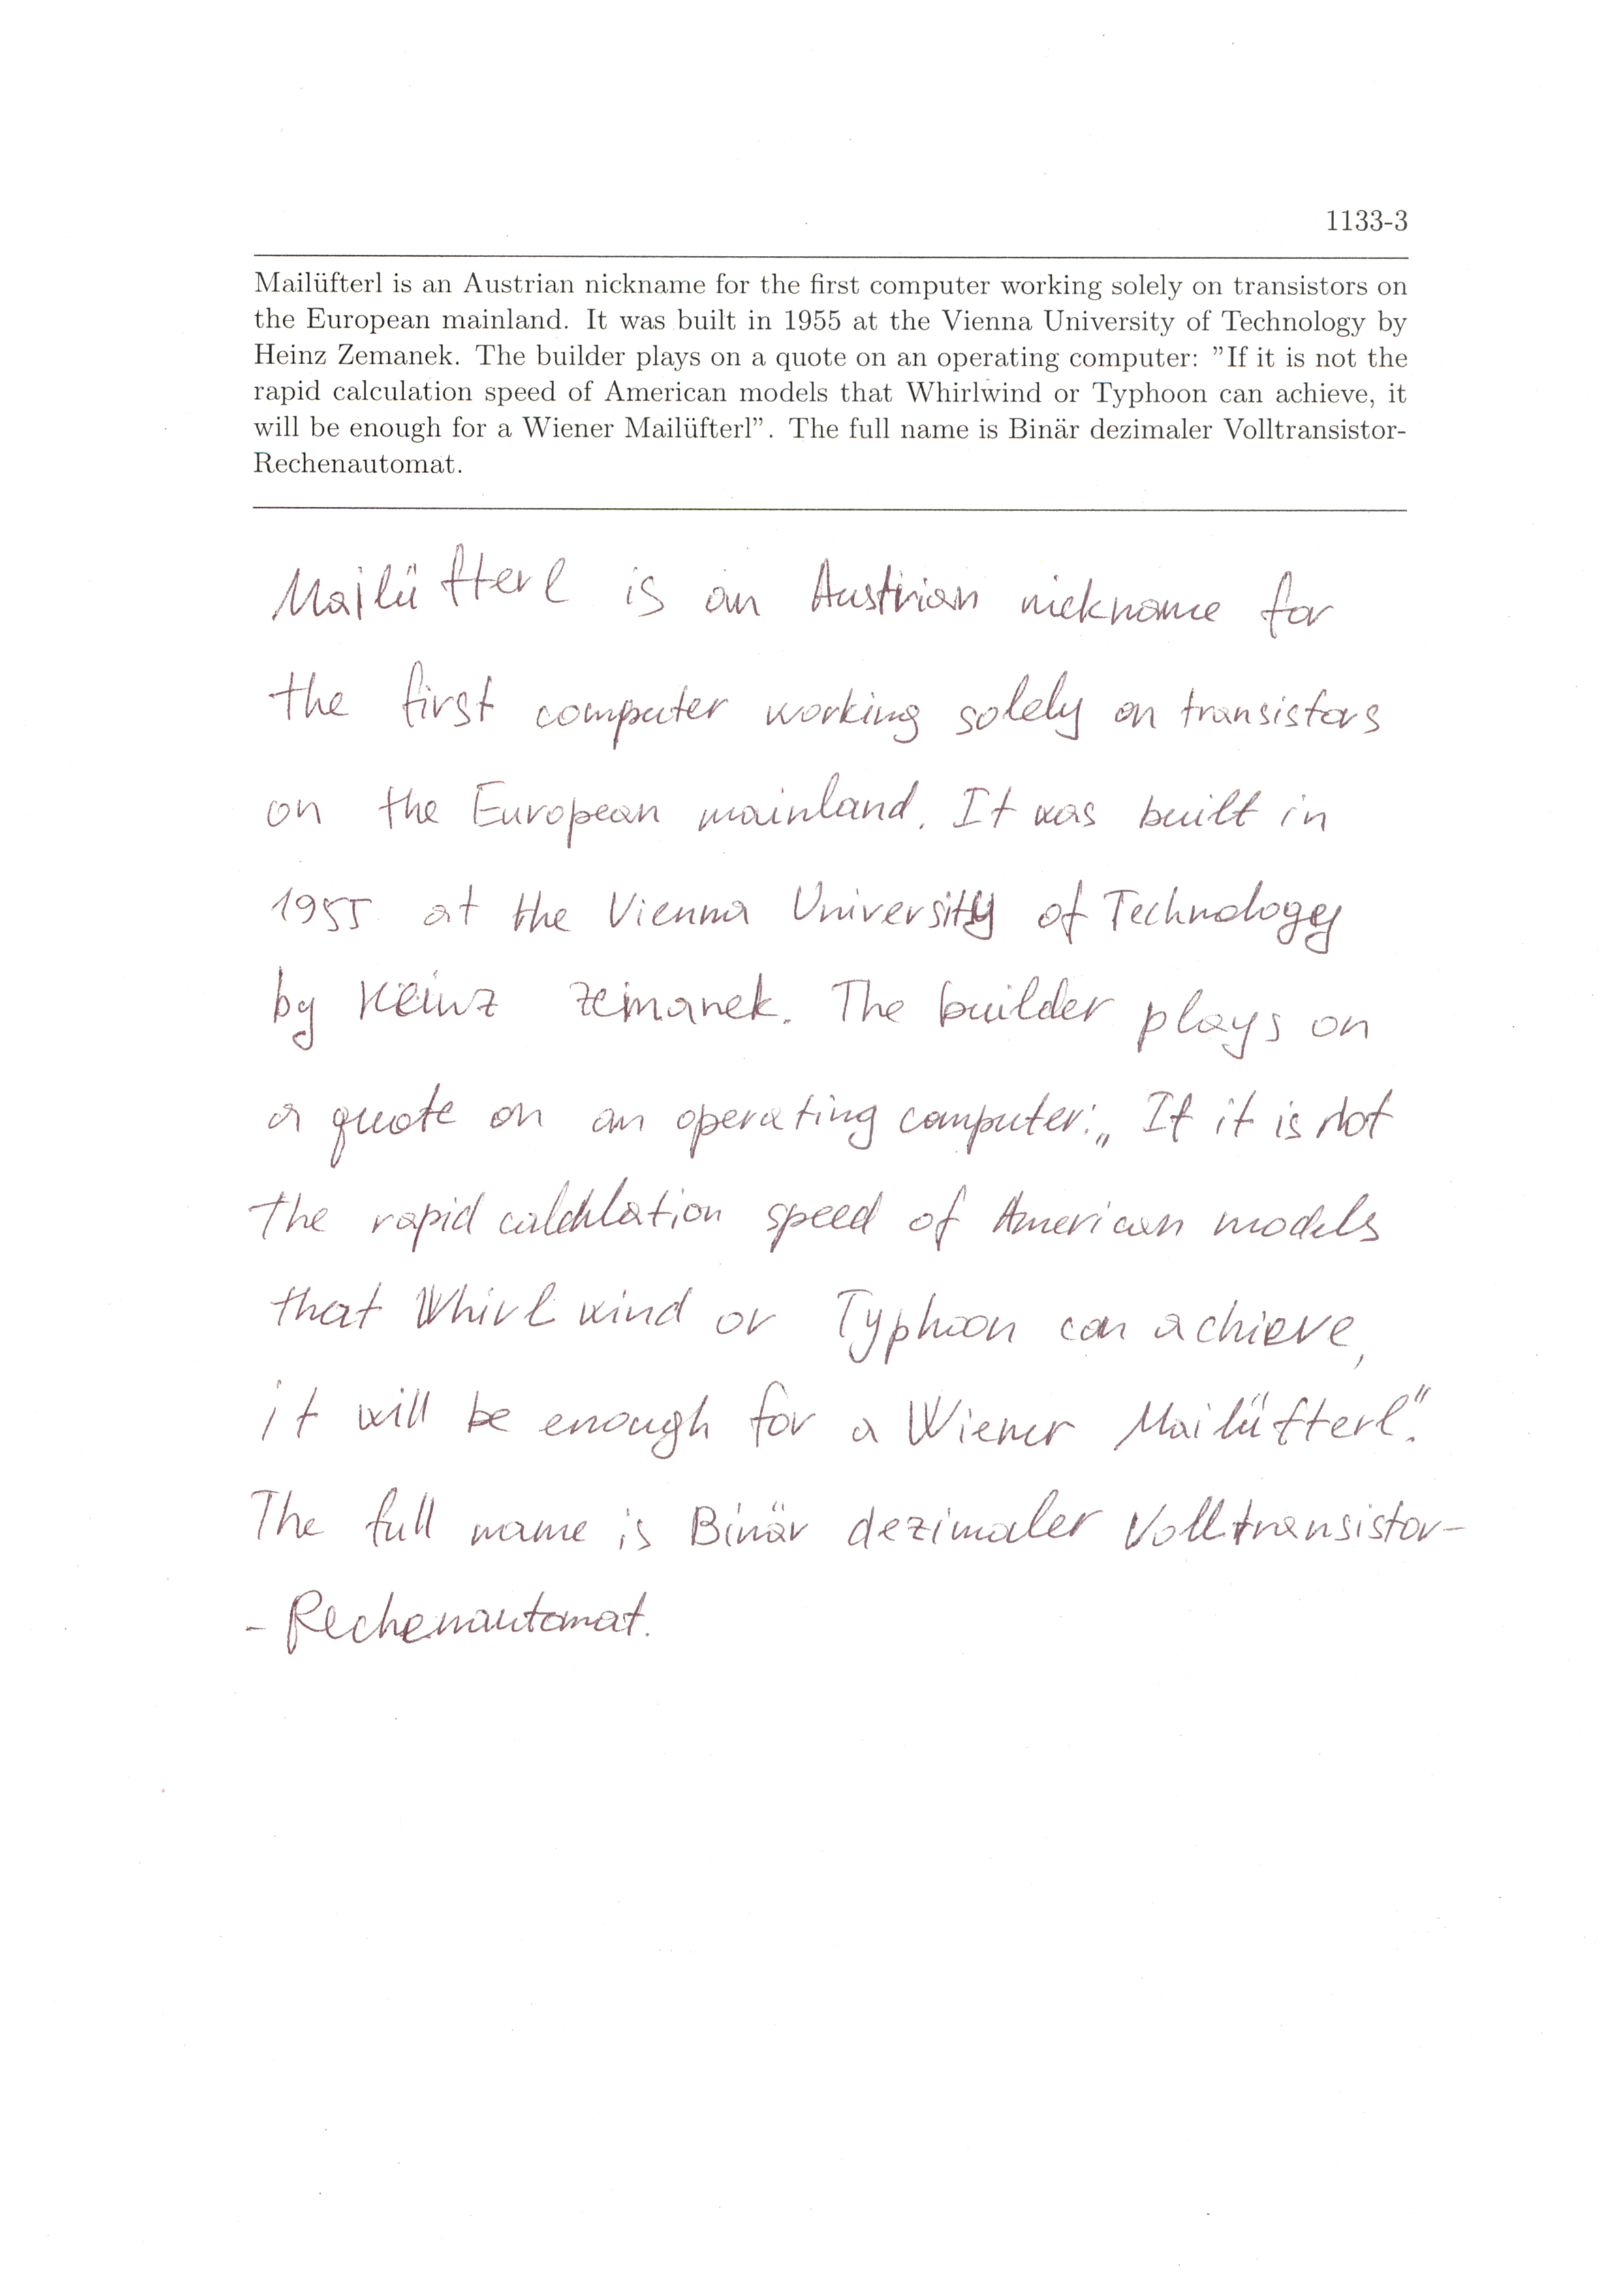 1133-3
Mailüfterl is an Austrian nickname for the first computer working solely on transistors on
the European mainland. It was built in 1955 at the Vienna University of Technology by
Heinz Zemanek. The builder plays on a quote on an operating computer: ”If it is not the
rapid calculation speed of American models that Whirlwind or Typhoon can achieve, it
will be enough for a Wiener Mailüfterl”. The full name is Binär dezimaler Volltransistor-
Rechenautomat.
Mailüfterl is an Austrian nickname for
the first computer working solely on transistors
on the European mainland. It was built in
1955 at the Vienna University of Technology
by Heinz Zemanek. The builder plays on
a quote on an operating computer: „If it is not
the rapid calculation speed of American models
that Whirlwind or Typhoon can achieve,
it will be enough for a Wiener Mailüfterl".
The full name is Binär dezimaler Volltransistor-
- Rechenautomat.